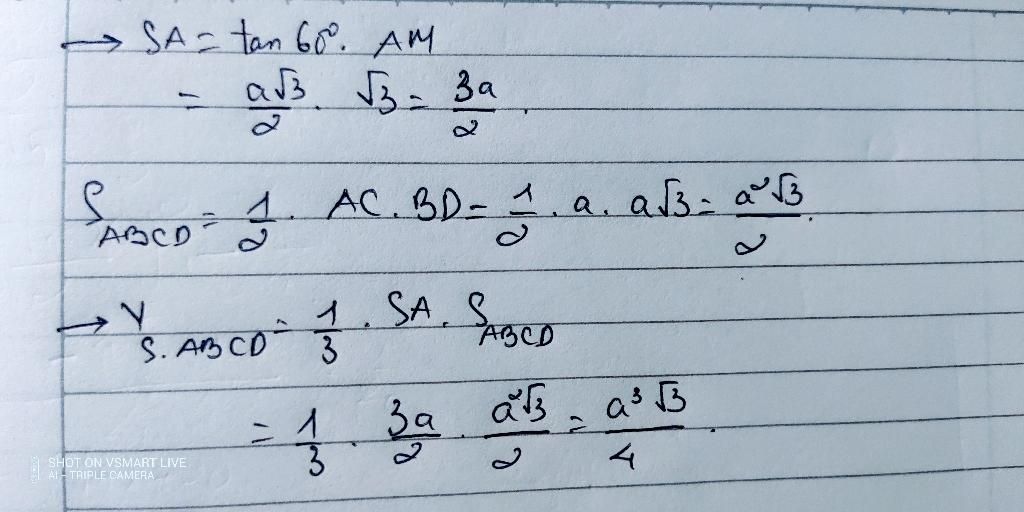 → SA = tan 60°. AM
= a√3/2 . √3 = 3a/2 .
S_ABCD = 1/2 . AC . BD = 1/2 . a . a√3 = a²√3/2 .
→ V_S.ABCD = 1/3 . SA . S_ABCD
= 1/3 . 3a/2 . a²√3/2 = a³√3/4 .
SHOT ON VSMART LIVE
AI - TRIPLE CAMERA